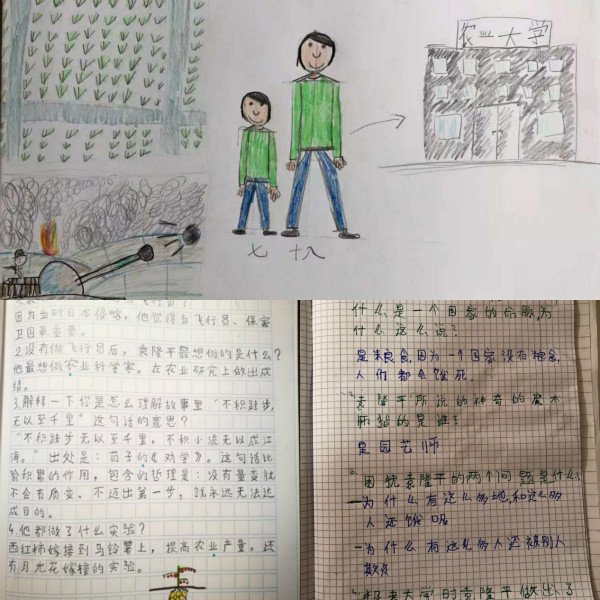 农业大学
七 十八
因为当时日本侵略，他觉得当飞行员、保家
卫国更重要。
2.没有做飞行员后，袁隆平最想做的是什么？
他最想做农业科学家，在农业研究上做出成
绩。
3.解释一下你是怎么理解故事里“不积跬步，
无以至千里”这句话的意思？
“不积跬步无以至千里，不积小流无以成江
海。”出处是：荀子的《劝学》。这句话比
喻积累的作用，包含的哲理是：没有量变就
不会有质变。不迈出第一步，就永远无法达
成目的。
4.他都做了什么实验？
西红柿嫁接到马铃薯上，提高农业产量。还
有月光花嫁接的实验。
什么是一个国家的命脉，为
什么这么说？
是粮食，因为一个国家没有粮食，
人们都会饿死。
袁隆平所说的神奇的魔术
师指的是谁？
是园艺师
困扰袁隆平的两个问题是什么
一为什么有这么多地，和这么多
人还饿呢
一为什么有这么多人还被别人
欺负
大学时袁隆平做出了